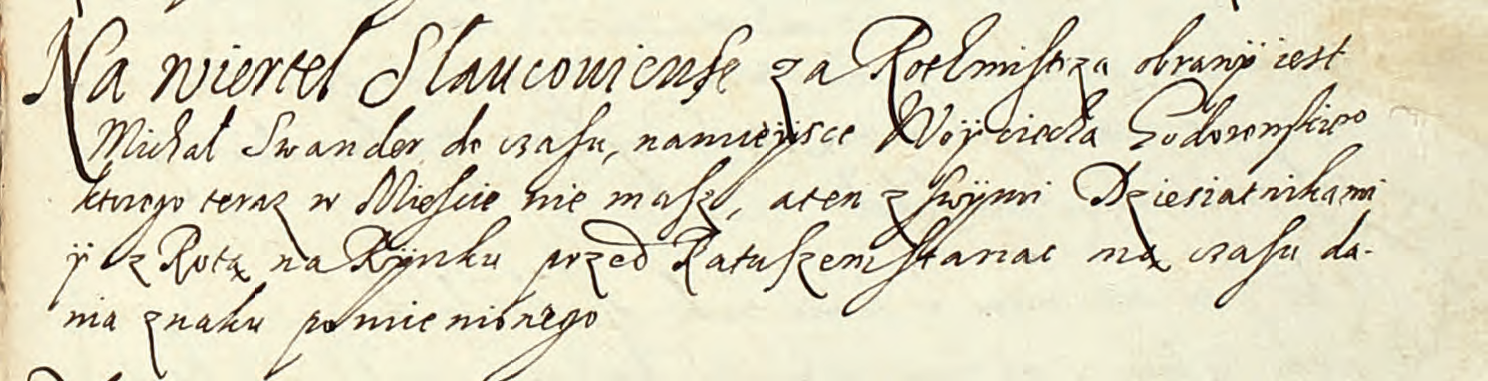 Na wiertel Slaucouiense za Rothmistrza obranÿ iest
Michał Swander do czasu, namieÿsce Woÿciecha
ktorego teraz w Miescie nie masz, aten z swÿmi Dziesiatnikami
ÿ z Rotą na Rÿnku przed Ratuszem stanac ma czasu da-
nia znaku pomienionego